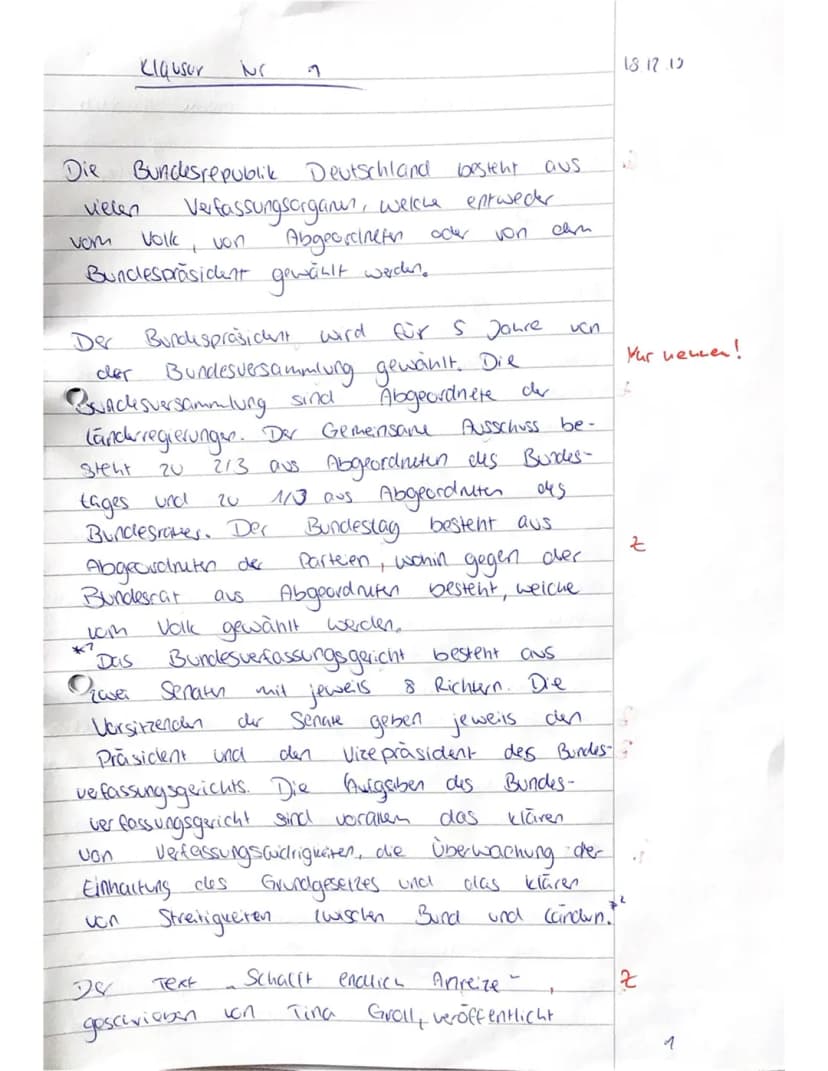 Klausur Nr 1
18.12.19
Die Bundesrepublik Deutschland besteht aus
vielen Verfassungsorganen, welche entweder
vom Volk, von Abgeordneten oder von dem
Bundespräsident gewählt werden.
Der Bundespräsident wird für 5 Jahre von
Nur nennen!
der Bundesversammlung gewählt. Die
Bundesversammlung sind Abgeordnete der
Länderregierungen. Der Gemeinsame Ausschuss be-
steht zu 2/3 aus Abgeordneten des Bundes-
tages und zu 1/3 aus Abgeordneten des
Bundesrates. Der Bundestag besteht aus
Z
Abgeordneten der Parteien, wohin gegen der
Bundesrat aus Abgeordneten besteht, welche
vom Volk gewählt werden.
*1 Das Bundesverfassungsgericht besteht aus
zwei Senaten mit jeweils 8 Richtern. Die
Vorsitzenden der Senate geben jeweils den
Präsident und den Vizepräsident des Bundes-
verfassungsgerichts. Die Aufgaben des Bundes-
verfassungsgericht sind vorallem das klären
von Verfassungswidrigkeiten, die Überwachung der
Einhaltung des Grundgesetzes und das klären
von Streitigkeiten zwischen Bund und Ländern.*2
Der Text "Schafft endlich Anreize",
Z
geschrieben von Tina Groll, veröffentlicht
1